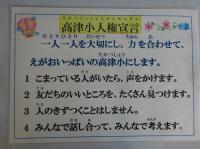 高津小人権宣言
一人一人を大切にし、力を合わせて、
えがおいっぱいの高津小にします。
1 こまっている人がいたら、声をかけます。
2 友だちのいいところを、たくさん見つけます。
3 人のきずつくことはしません。
4 みんなで話し合って、みんなで考えます。